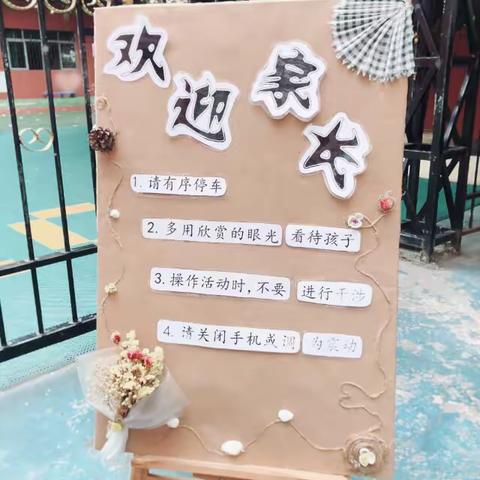 欢迎家长
1. 请有序停车
2. 多用欣赏的眼光 看待孩子
3. 操作活动时,不要 进行干涉
4. 请关闭手机或调 为震动